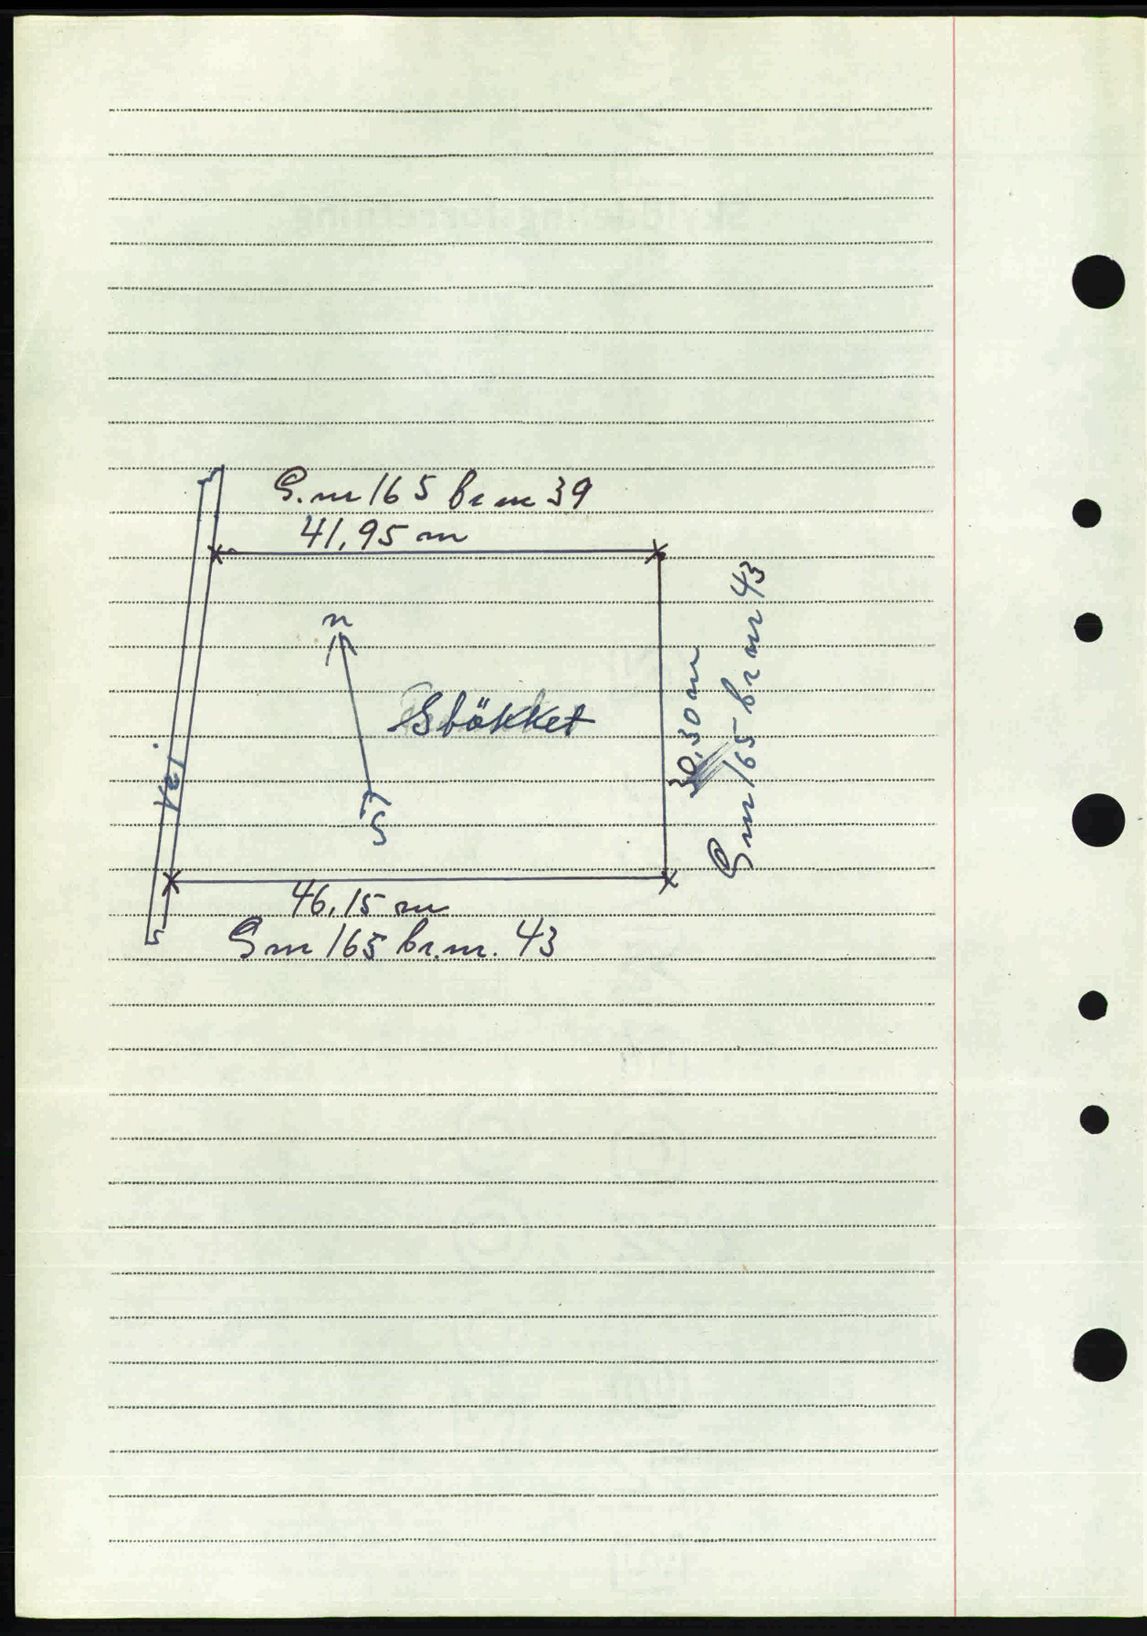 G.nr 165 br nr 39
41,95 m
n
30,30 m
Gnr 165 br nr 43
S
46,15 m
Gnr 165 br.nr. 43